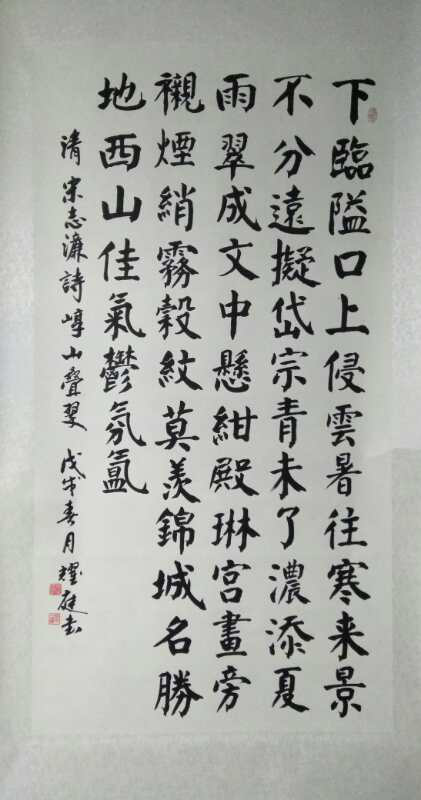 下臨隘口上侵雲暑往寒来景
不分遠擬岱宗青未了濃添夏
雨翠成文中懸紺殿琳宮畫旁
襯煙綃霧縠紋莫羨錦城名勝
地西山佳氣鬱氛氳
清宋志濂詩崞山疊翠戊戌春月耀庭书